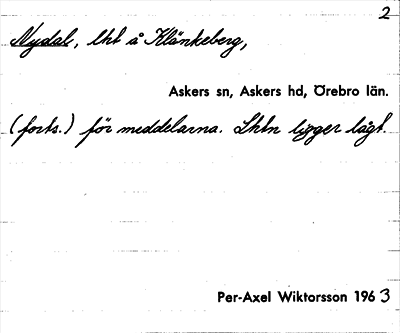 2
Nydal, lht å Klänkeberg,
Askers sn, Askers hd, Örebro län.
(forts.) för meddelarna. Lhtn ligger lågt.
Per-Axel Wiktorsson 1963